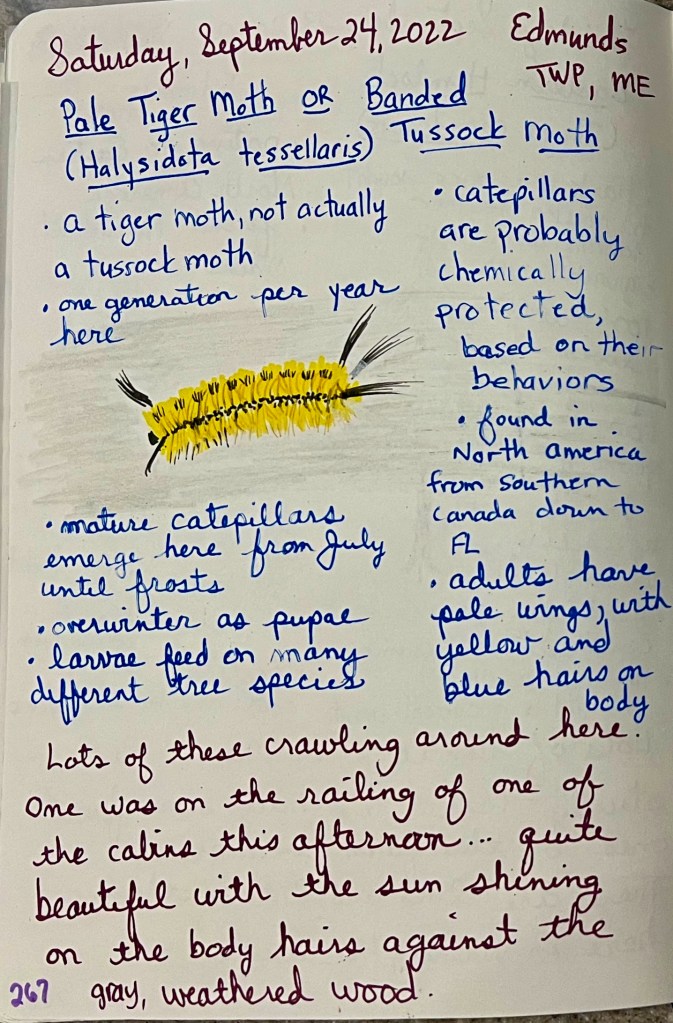 Saturday, September 24, 2022 Edmunds
TWP, ME
Pale Tiger Moth OR Banded
(Halysidota tessellaris) Tussock Moth
· a tiger moth, not actually
a tussock moth
· one generation per year
here
· mature catepillars
emerge here from July
until frosts
· overwinter as pupae
· larvae feed on many
different tree species
· catepillars
are probably
chemically
protected,
based on their
behaviors
· found in
North america
from Southern
Canada down to
FL
· adults have
pale wings, with
yellow and
blue hairs on
body
Lots of these crawling around here.
One was on the railing of one of
the cabins this afternoon... quite
beautiful with the sun shining
on the body hairs against the
gray, weathered wood.
267